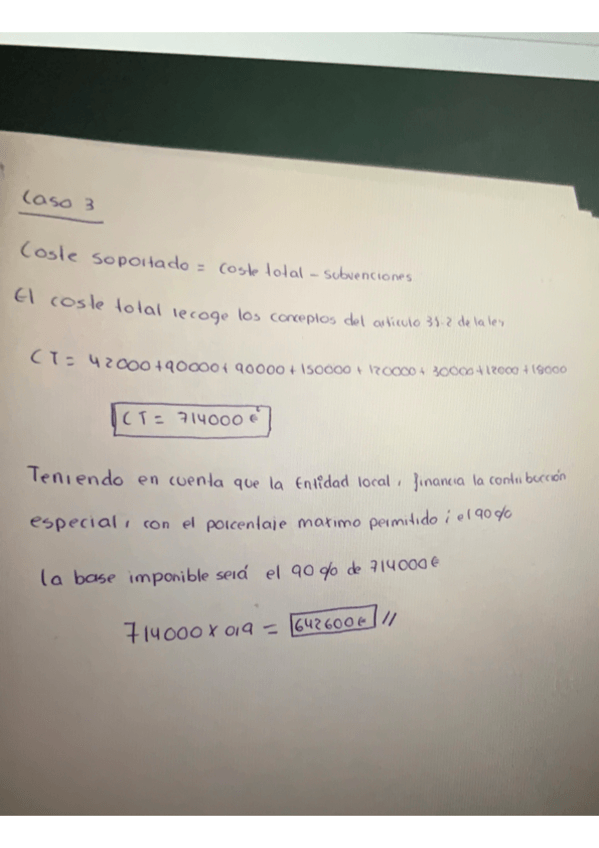 Caso 3
Coste soportado = coste total - subvenciones
El coste total recoge los conceptos del articulo 31.2 de la ley
CT = 42000+90000+90000+150000+120000+30000+12000+18000
CT = 714000 €
Teniendo en cuenta que la Entidad local, financia la contribucción
especial, con el porcentaje maximo permitido; el 90%
la base imponible será el 90% de 714000€
714000 x 0,9 = 642600€ //